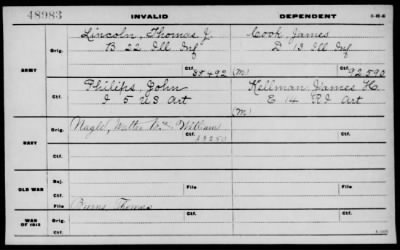 48983 INVALID DEPENDENT
Lincoln, Thomas J. Cook, James
Orig. B 22 Ill Inf D 13 Ill Inf
Ctf. 38492 (M) Ctf. 92590
ARMY
Philips, John Kellman, James H.
Orig. I 5 US Art E 14 RI Art
Ctf. (M) Ctf.
Orig. Nagle, William
NAVY
Ctf. Ctf.
Orig.
OLD WAR
File File
Orig. Burns, Thomas
WAR OF 1812
Ctf. Ctf.
File File